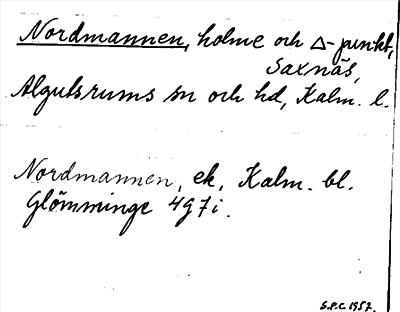 Nordmannen, holme och △-punkt,
Saxnäs,
Algutsrums sn och hd, Kalm. l.
Nordmannen, ek, Kalm. bl.
Glömminge 4g7i.
S.P.C 1957.